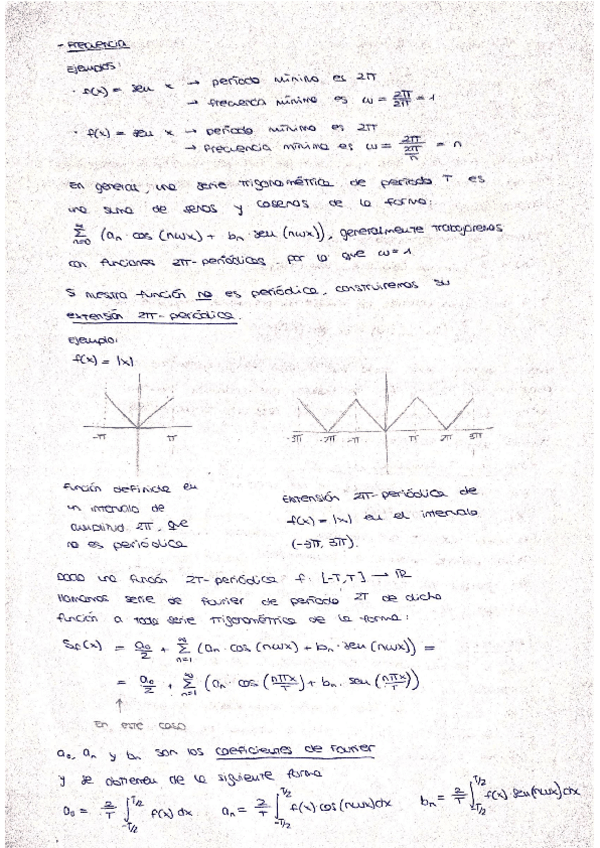 - Frecuencia
Ejemplos:
· f(x) = sen x → período mínimo es 2π
→ frecuencia mínimo es ω = 2π/2π = 1
· f(x) = sen x → período mínimo es 2π
→ frecuencia mínima es ω = 2π/(2π/n) = n
En general, una serie trigonométrica de período T es
una suma de senos y cosenos de la forma:
∑_{n=0}^{∞} (aₙ · cos (nωx) + bₙ · sen (nωx)), generalmente trabajaremos
con funciones 2π-periódicas, por lo que ω = 1
S nuestra función no es periódica, construiremos su
extensión 2π-periódica.
Ejemplo:
f(x) = |x|
-π π
-3π -2π -π π 2π 3π
Función definida en
un intervalo de
amplitud 2π, que
no es periódica
Extensión 2π-periódica de
f(x) = |x| en el intervalo
(-3π, 3π).
Dada una función 2T-periódica f: [-T,T] → ℝ
llamamos serie de Fourier de período 2T de dicha
función a toda serie trigonométrica de la forma:
S_f(x) = a₀/2 + ∑_{n=1}^{∞} (aₙ · cos (nωx) + bₙ · sen (nωx)) =
= a₀/2 + ∑_{n=1}^{∞} (aₙ · cos (nπx/T) + bₙ · sen (nπx/T))
↑
En este caso
a₀, aₙ y bₙ son los coeficientes de Fourier
y se obtienen de la siguiente forma
a₀ = 2/T ∫_{-T/2}^{T/2} f(x) dx aₙ = 2/T ∫_{-T/2}^{T/2} f(x) cos (nωx) dx bₙ = 2/T ∫_{-T/2}^{T/2} f(x) · sen (nωx) dx